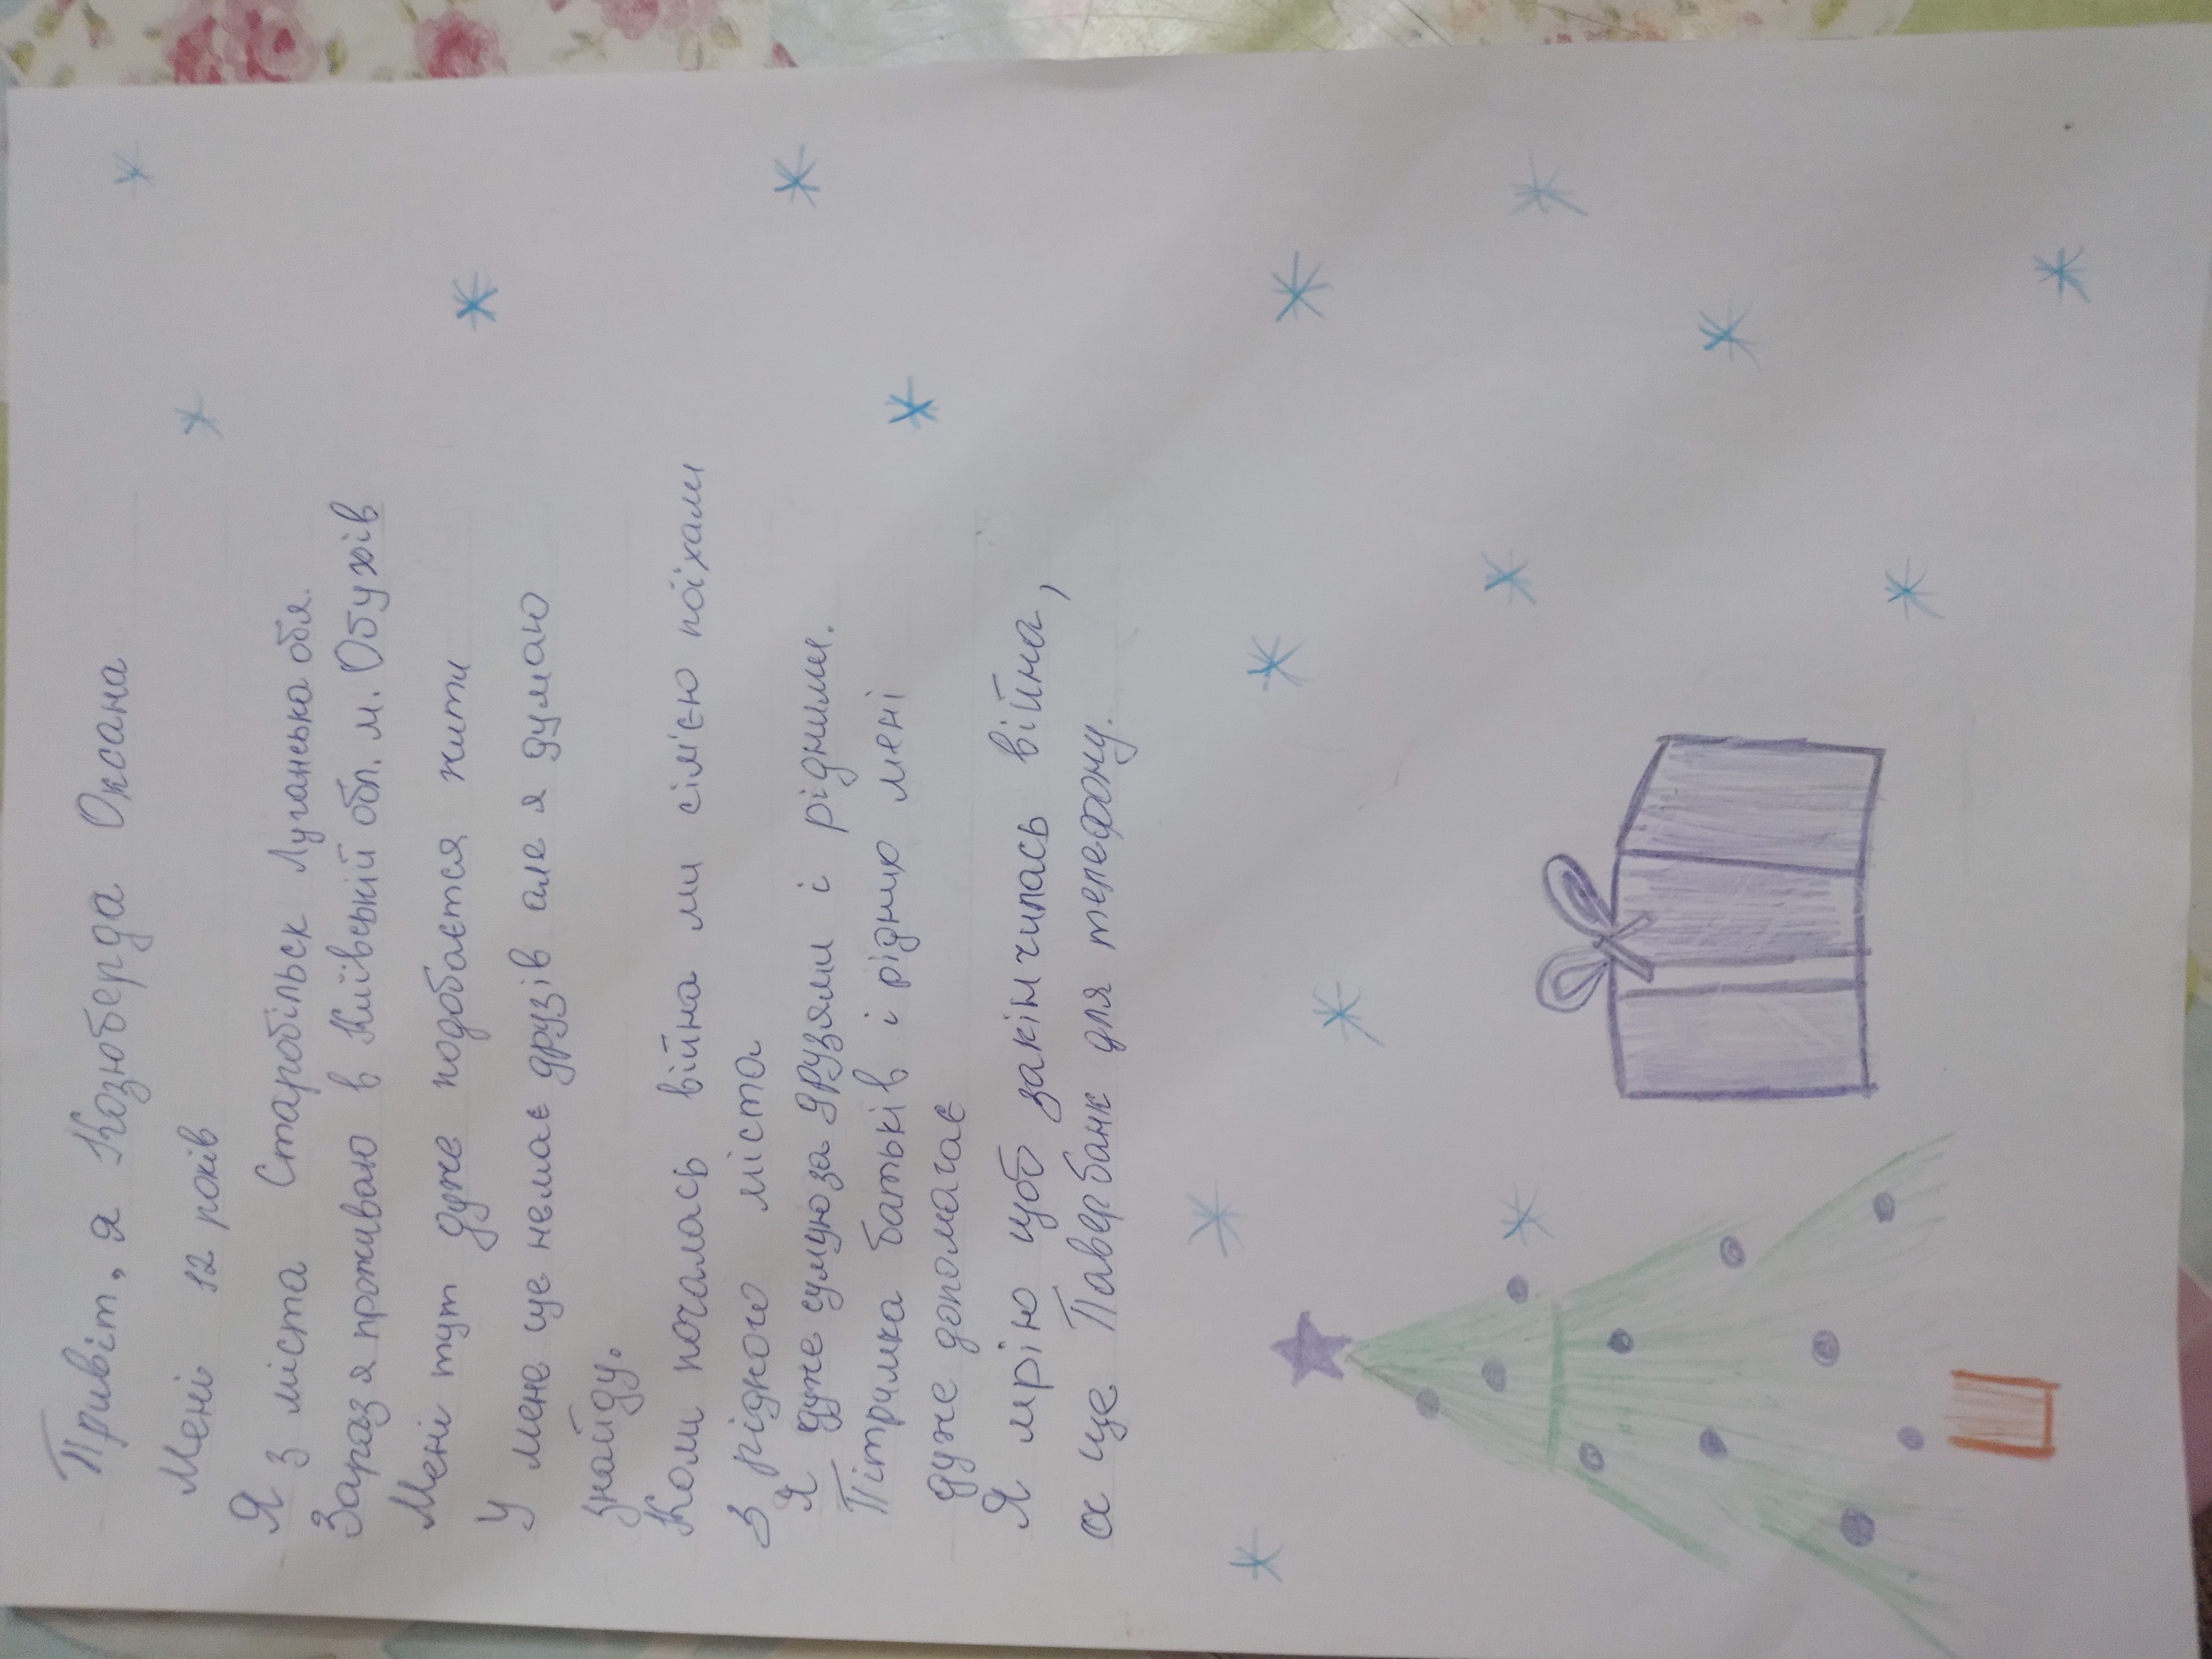 Привіт, я Козюберда Оксана
Мені 12 років
Я з міста Старобільск Луганська обл.
Зараз я проживаю в Київській обл. м. Обухів
Мені тут дуже подобається жити
У мене ще немає друзів але я думаю
знайду.
Коли почалась війна ми сім'єю поїхали
з рідного міста
Я дуже сумую за друзями і рідними.
Пітримка батьків і рідних мені
дуже допомагає
Я мрію щоб закінчилась війна,
а ще Павербанк для телефону.